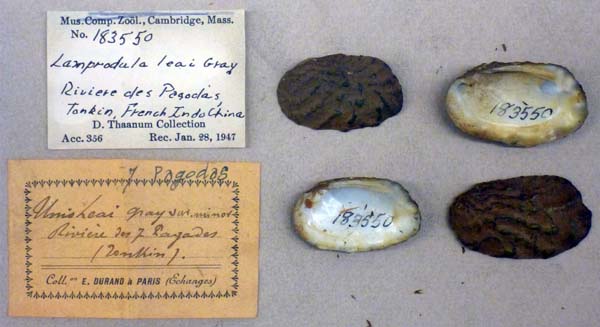 Mus. Comp. Zoöl., Cambridge, Mass.
No. 183550
Lamprodula leai Gray
Riviere des Pegodas
Tonkin, French IndoChina
D. Thaanum Collection
Acc. 356 Rec. Jan. 28, 1947
7 Pagodas
Unio Leai gray var. minor
Rivière des 7 Pagades
(Tonkin).
Coll.on E. DURAND à PARIS (Echanges)
183550
183550